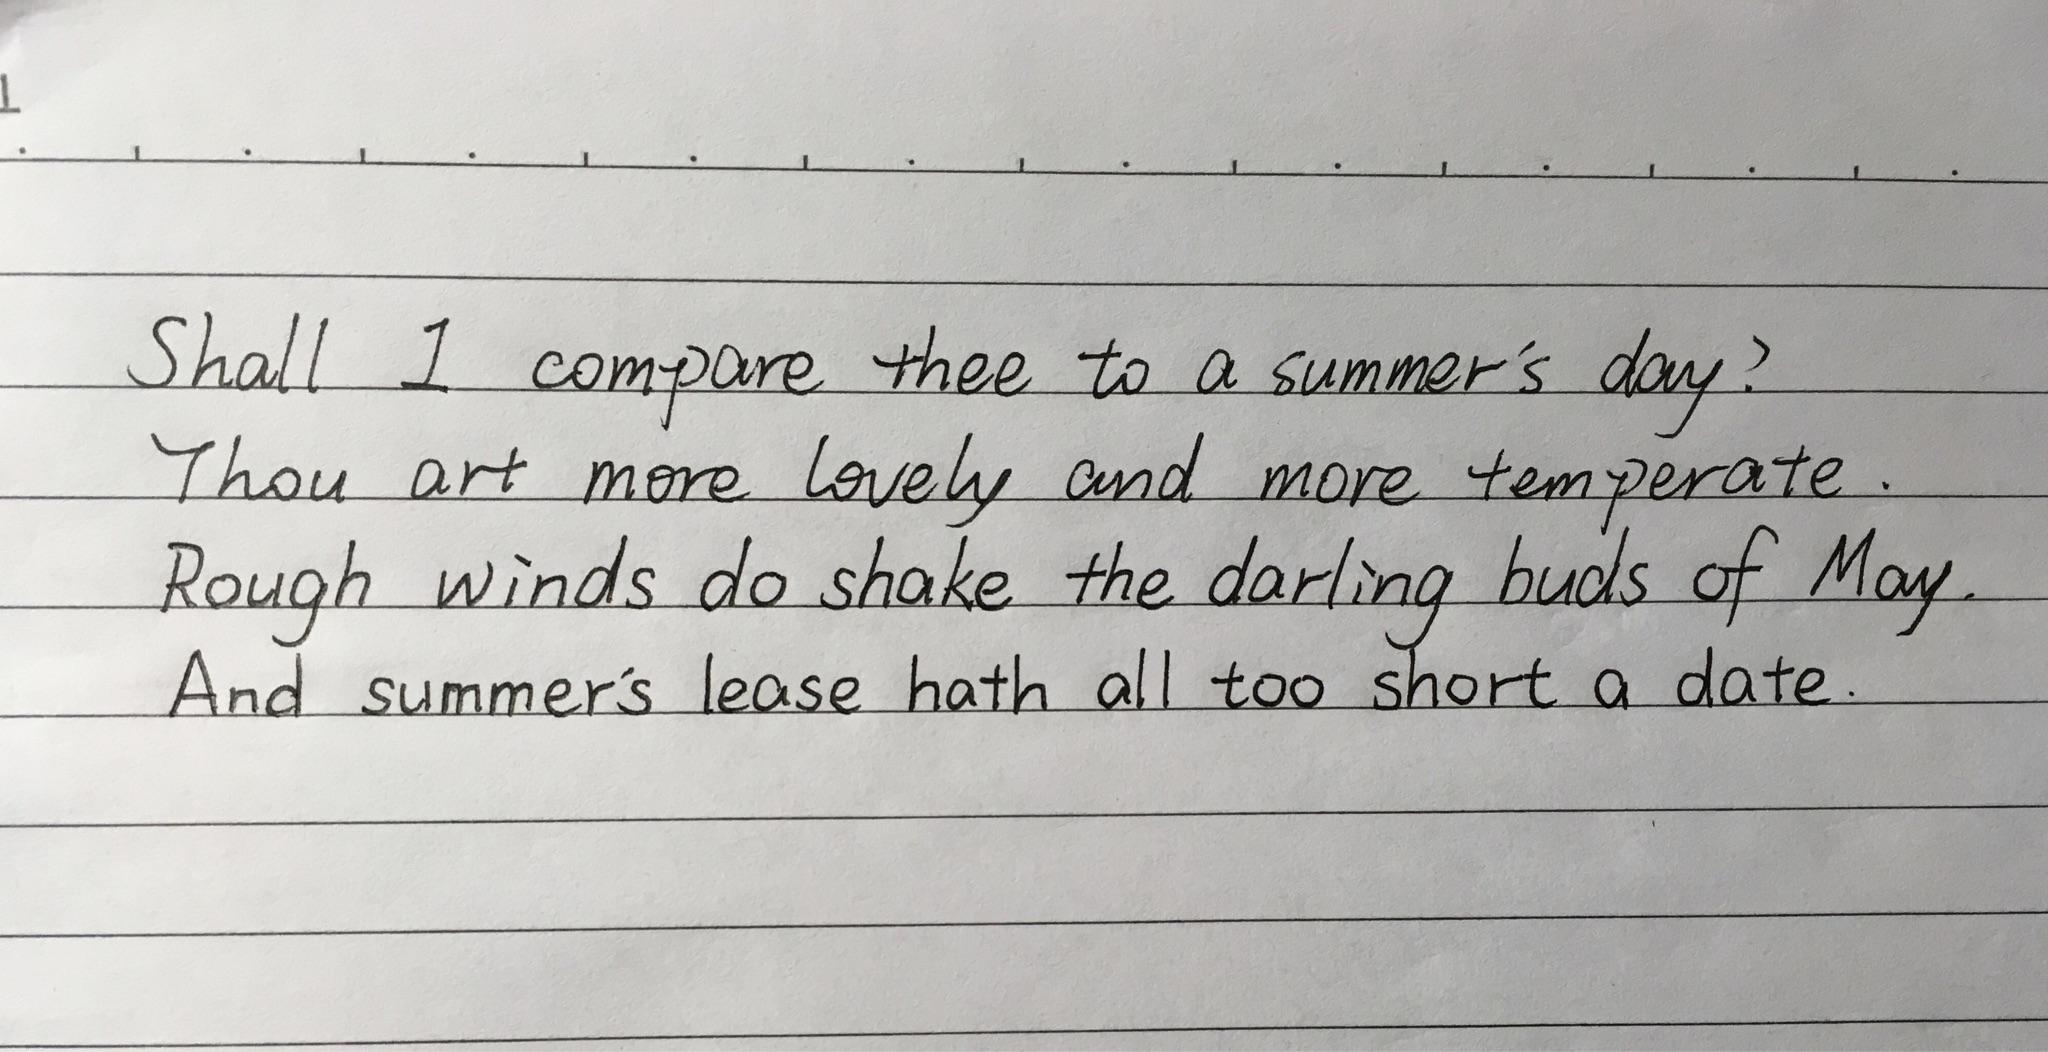 Shall I compare thee to a summer's day?
Thou art more lovely and more temperate.
Rough winds do shake the darling buds of May.
And summer's lease hath all too short a date.